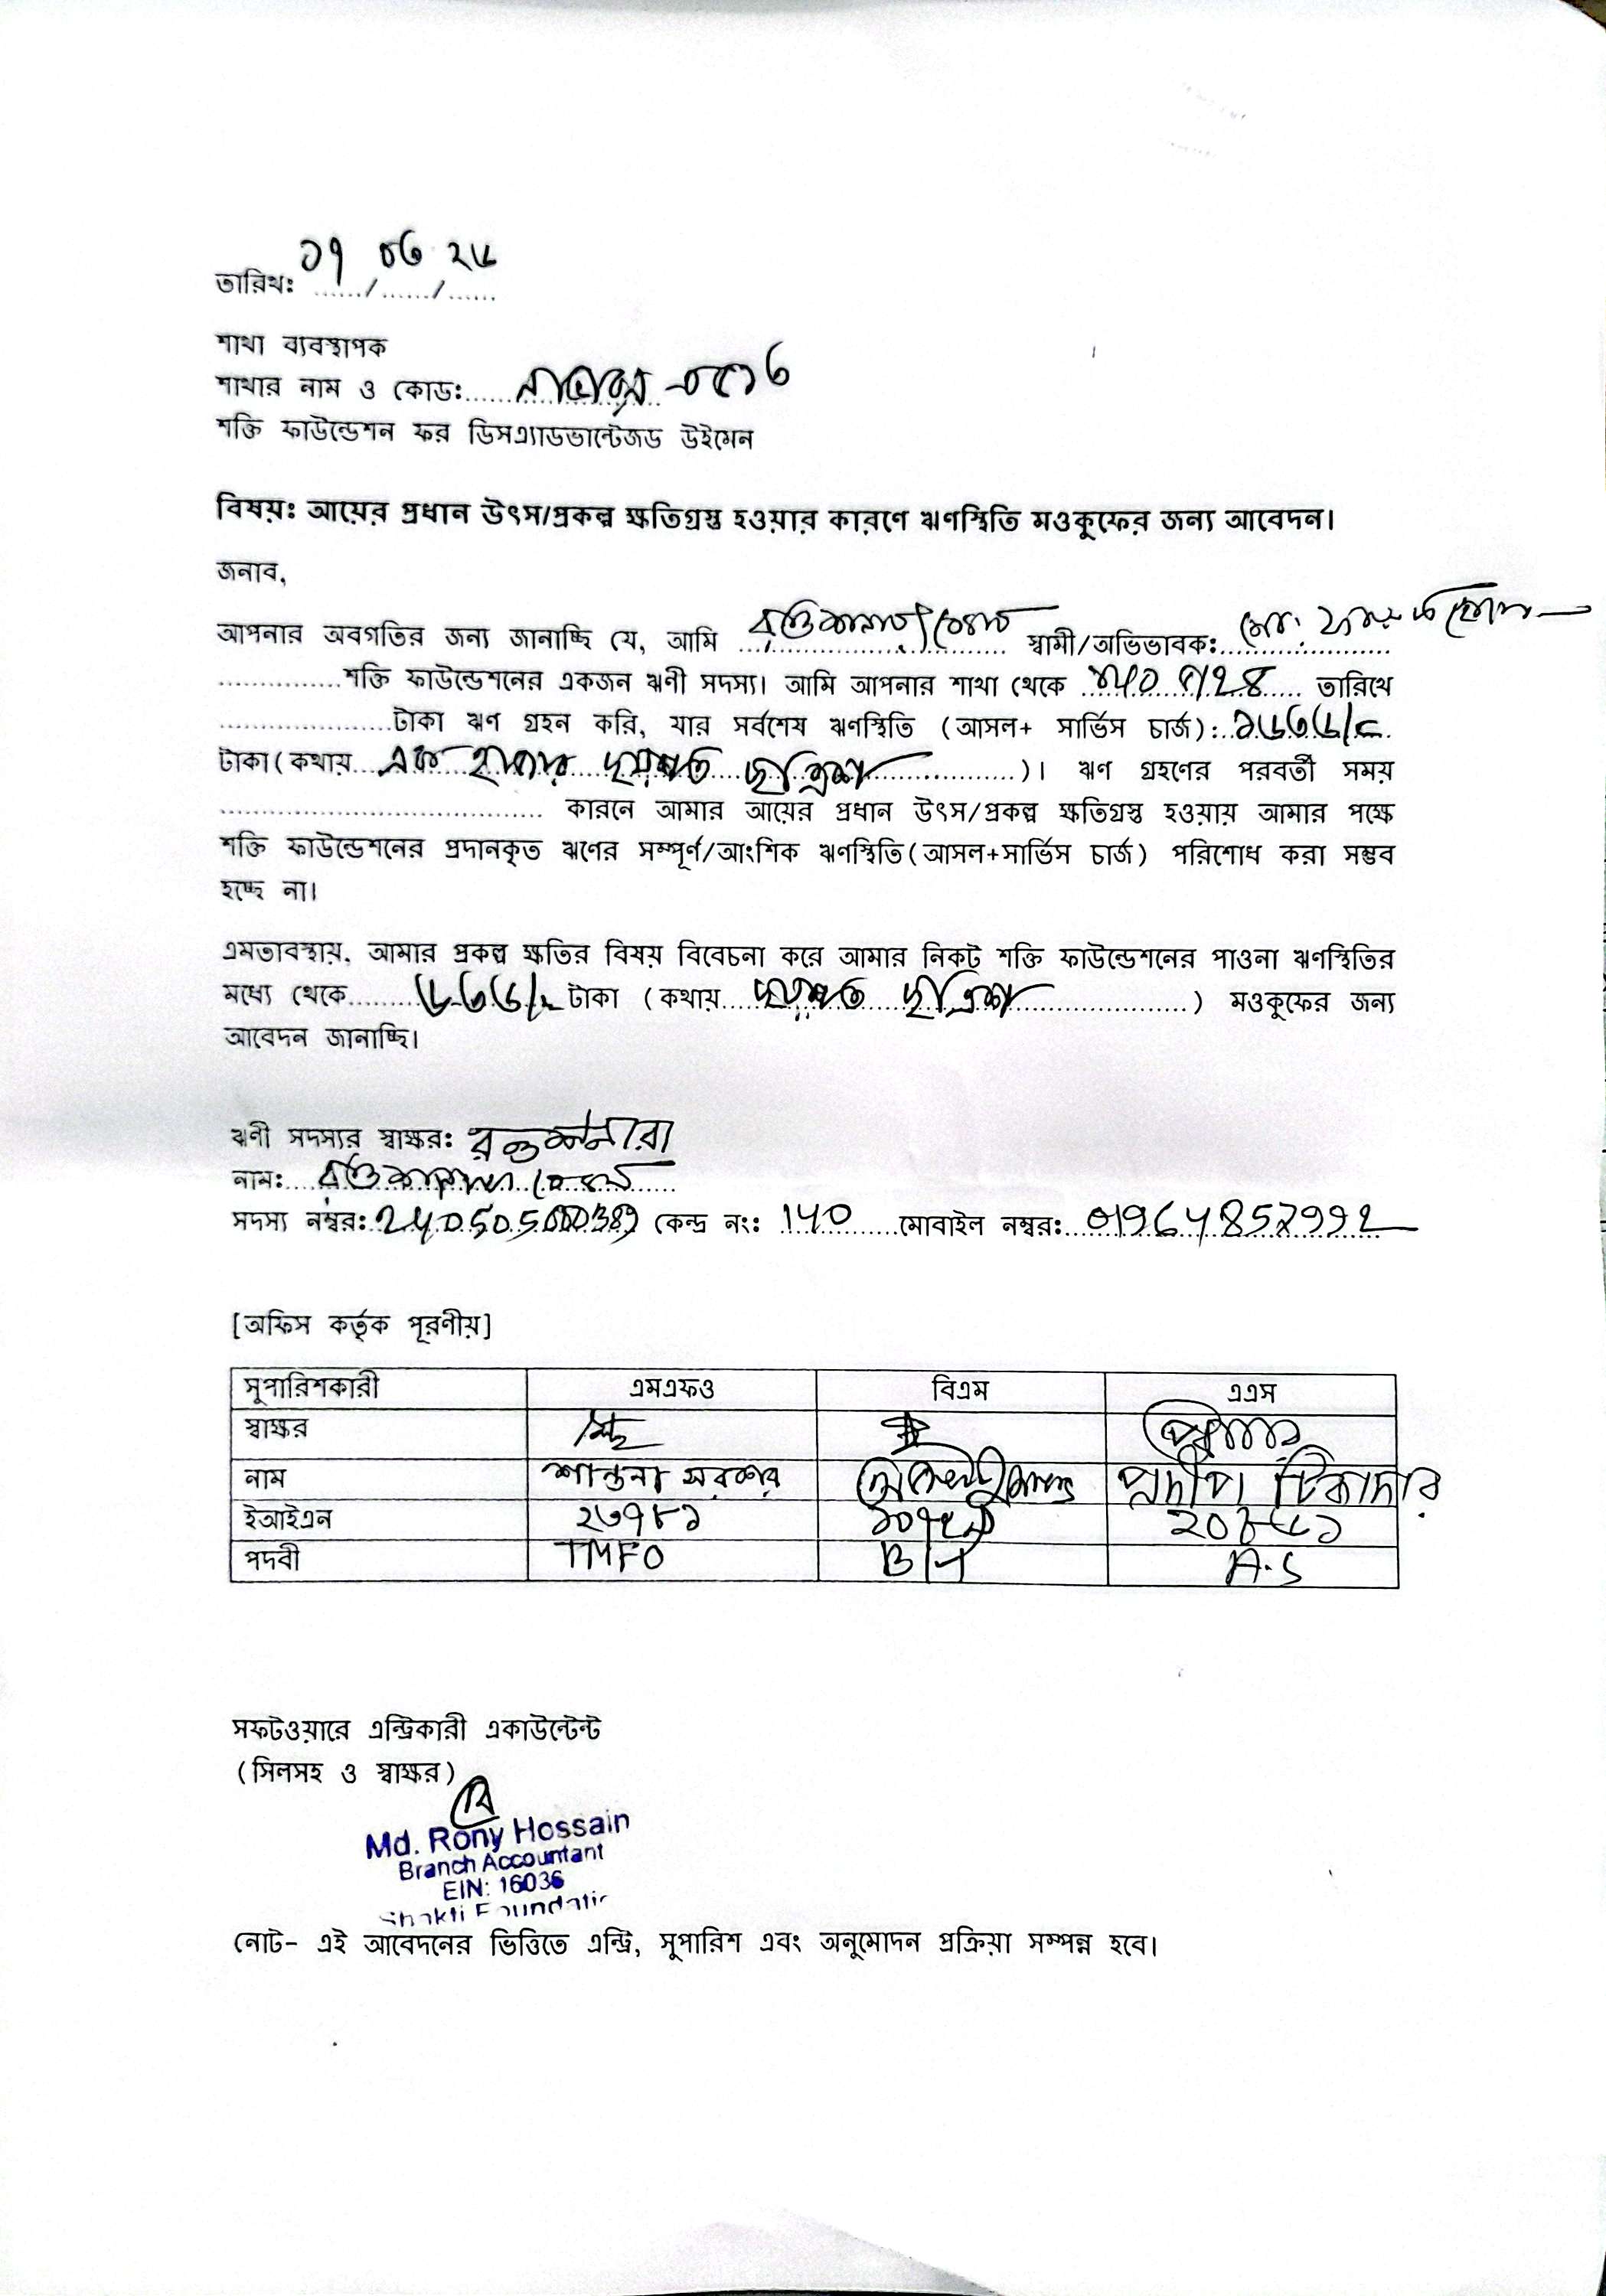 তারিখ: ...../....../......
শাখা ব্যবস্থাপক
শাখার নাম ও কোড:
শক্তি ফাউন্ডেশন ফর ডিসএ্যাডভান্টেজড উইমেন
বিষয়: আয়ের প্রধান উৎস/প্রকল্প ক্ষতিগ্রস্ত হওয়ার কারণে ঋণস্থিতি মওকুফের জন্য আবেদন।
জনাব,
আপনার অবগতির জন্য জানাচ্ছি যে, আমি স্বামী/অভিভাবক:
শক্তি ফাউন্ডেশনের একজন ঋণী সদস্য। আমি আপনার শাখা থেকে তারিখে
টাকা ঋণ গ্রহন করি, যার সর্বশেষ ঋণস্থিতি (আসল+ সার্ভিস চার্জ): ১৬৩৬/=
টাকা(কথায় এক হাজার ছয়শত ছত্রিশ )। ঋণ গ্রহণের পরবর্তী সময়
কারনে আমার আয়ের প্রধান উৎস/প্রকল্প ক্ষতিগ্রস্ত হওয়ায় আমার পক্ষে
শক্তি ফাউন্ডেশনের প্রদানকৃত ঋণের সম্পূর্ণ/আংশিক ঋণস্থিতি(আসল+সার্ভিস চার্জ) পরিশোধ করা সম্ভব
হচ্ছে না।
এমতাবস্থায়, আমার প্রকল্প ক্ষতির বিষয় বিবেচনা করে আমার নিকট শক্তি ফাউন্ডেশনের পাওনা ঋণস্থিতির
মধ্যে থেকে ৬৩৬/= টাকা (কথায় ছয়শত ছত্রিশ ) মওকুফের জন্য
আবেদন জানাচ্ছি।
ঋণী সদস্যর স্বাক্ষর: রওশনারা
নাম:
সদস্য নম্বর: কেন্দ্র নং: 140 মোবাইল নম্বর:
[অফিস কর্তৃক পূরণীয়]
সুপারিশকারী এমএফও বিএম এএস
স্বাক্ষর
নাম শান্তনা সরকার প্রদীপ টিকাদার
ইআইএন ২৩৭৮১
পদবী TMFO BM A.S
সফটওয়ারে এন্ট্রিকারী একাউন্টেন্ট
(সিলসহ ও স্বাক্ষর)
Md. Rony Hossain
Branch Accountant
EIN: 16036
Shakti Foundatio
নোট- এই আবেদনের ভিত্তিতে এন্ট্রি, সুপারিশ এবং অনুমোদন প্রক্রিয়া সম্পন্ন হবে।